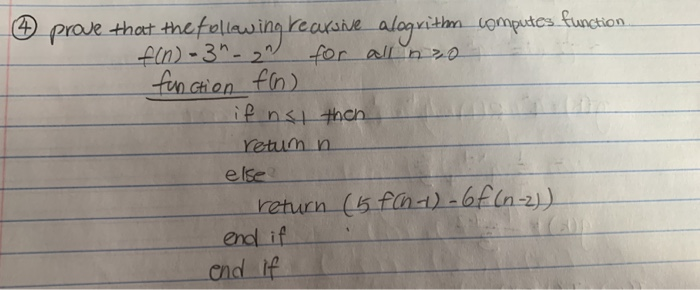 ④ prove that the following recarsive alogrithm computes function
f(n) = 3ⁿ - 2ⁿ for all n ≥ 0
function f(n)
if n ≤ 1 then
return n
else
return (5 f(n-1) - 6f(n-2))
end if
end if